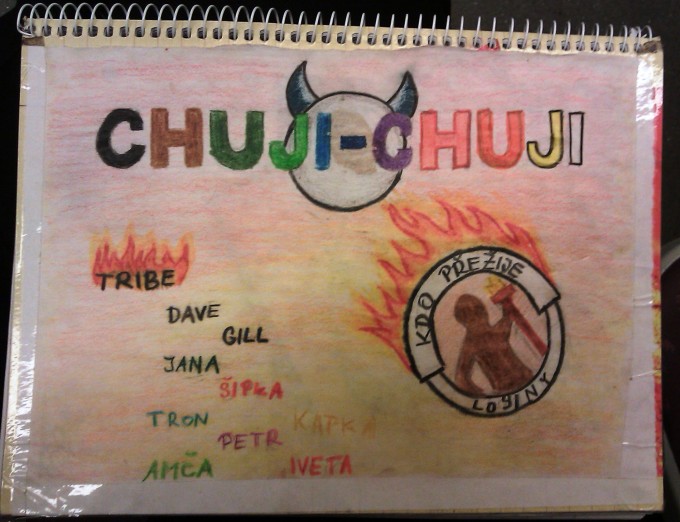 CHUJI-CHUJI
TRIBE
DAVE
GILL
JANA
ŠIPKA
TRON
KAPKA
PETR
AMČA
IVETA
KDO PŘEŽIJE
LOGINY